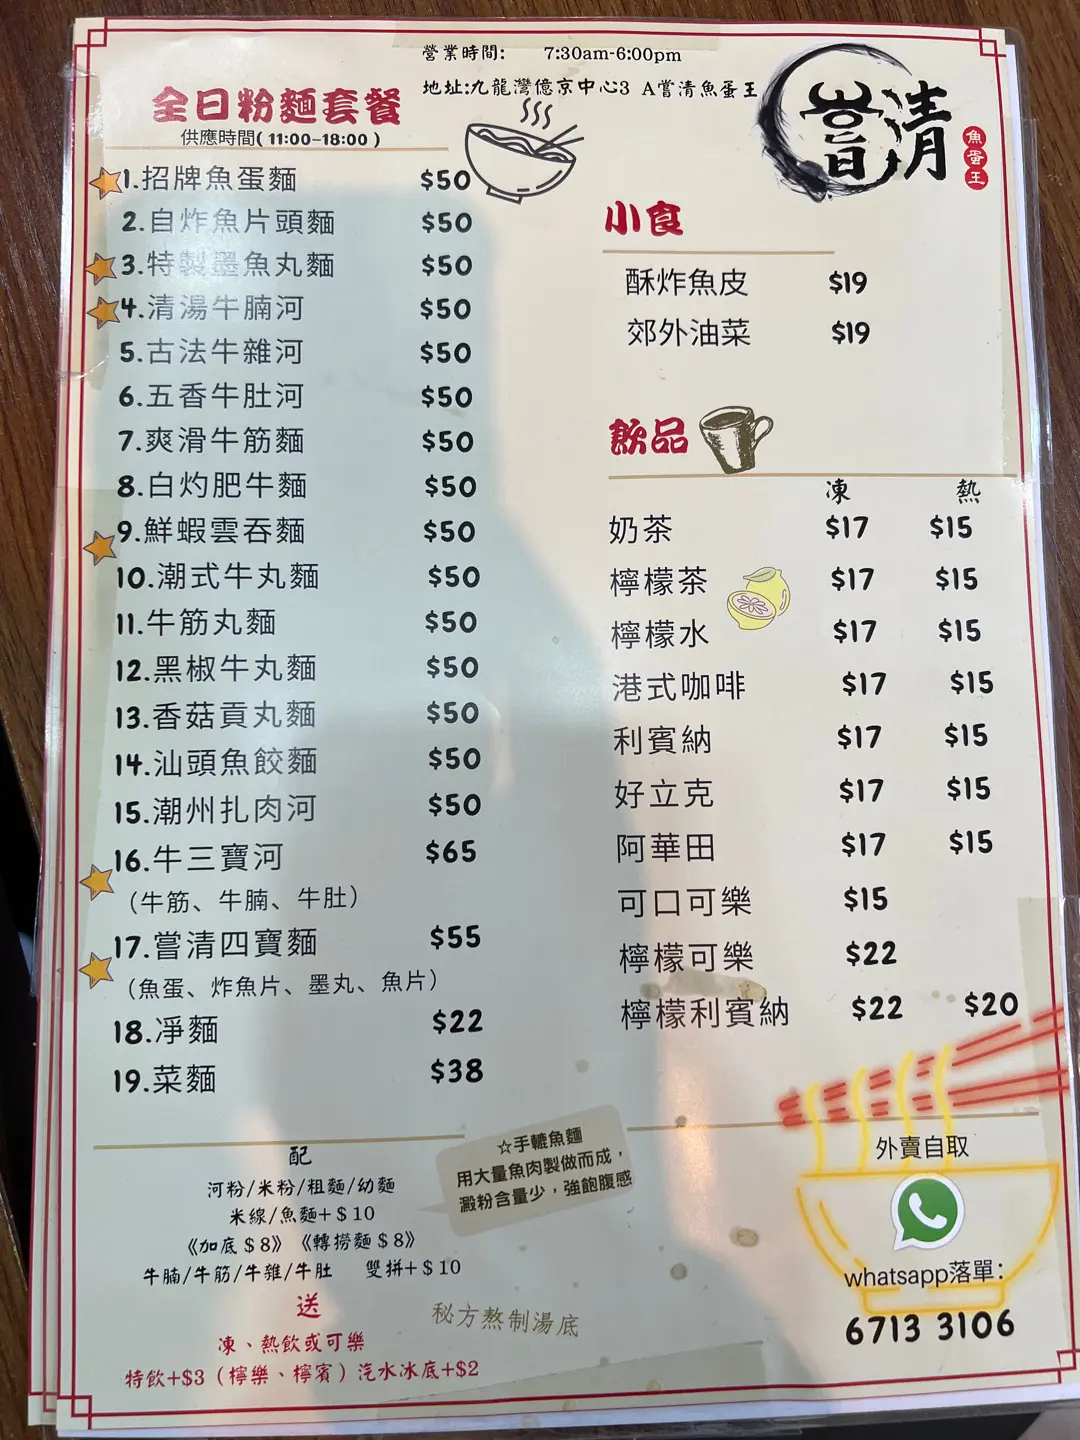 營業時間: 7:30am-6:00pm
地址:九龍灣億京中心3 A嘗清魚蛋王
嘗清
魚蛋王
全日粉麵套餐
供應時間( 11:00-18:00 )
1.招牌魚蛋麵 $50
2.自炸魚片頭麵 $50
3.特製墨魚丸麵 $50
4.清湯牛腩河 $50
5.古法牛雜河 $50
6.五香牛肚河 $50
7.爽滑牛筋麵 $50
8.白灼肥牛麵 $50
9.鮮蝦雲吞麵 $50
10.潮式牛丸麵 $50
11.牛筋丸麵 $50
12.黑椒牛丸麵 $50
13.香菇貢丸麵 $50
14.汕頭魚餃麵 $50
15.潮州扎肉河 $50
16.牛三寶河 $65
(牛筋、牛腩、牛肚)
17.嘗清四寶麵 $55
(魚蛋、炸魚片、墨丸、魚片)
18.淨麵 $22
19.菜麵 $38
小食
酥炸魚皮 $19
郊外油菜 $19
飲品
凍 熱
奶茶 $17 $15
檸檬茶 $17 $15
檸檬水 $17 $15
港式咖啡 $17 $15
利賓納 $17 $15
好立克 $17 $15
阿華田 $17 $15
可口可樂 $15
檸檬可樂 $22
檸檬利賓納 $22 $20
配
河粉/米粉/粗麵/幼麵
米線/魚麵+$10
《加底$8》《轉撈麵$8》
牛腩/牛筋/牛雜/牛肚 雙拼+$10
送
凍、熱飲或可樂
特飲+$3(檸樂、檸賓)汽水冰底+$2
☆手轆魚麵
用大量魚肉製做而成,
澱粉含量少,強飽腹感
秘方熬制湯底
外賣自取
whatsapp落單:
6713 3106